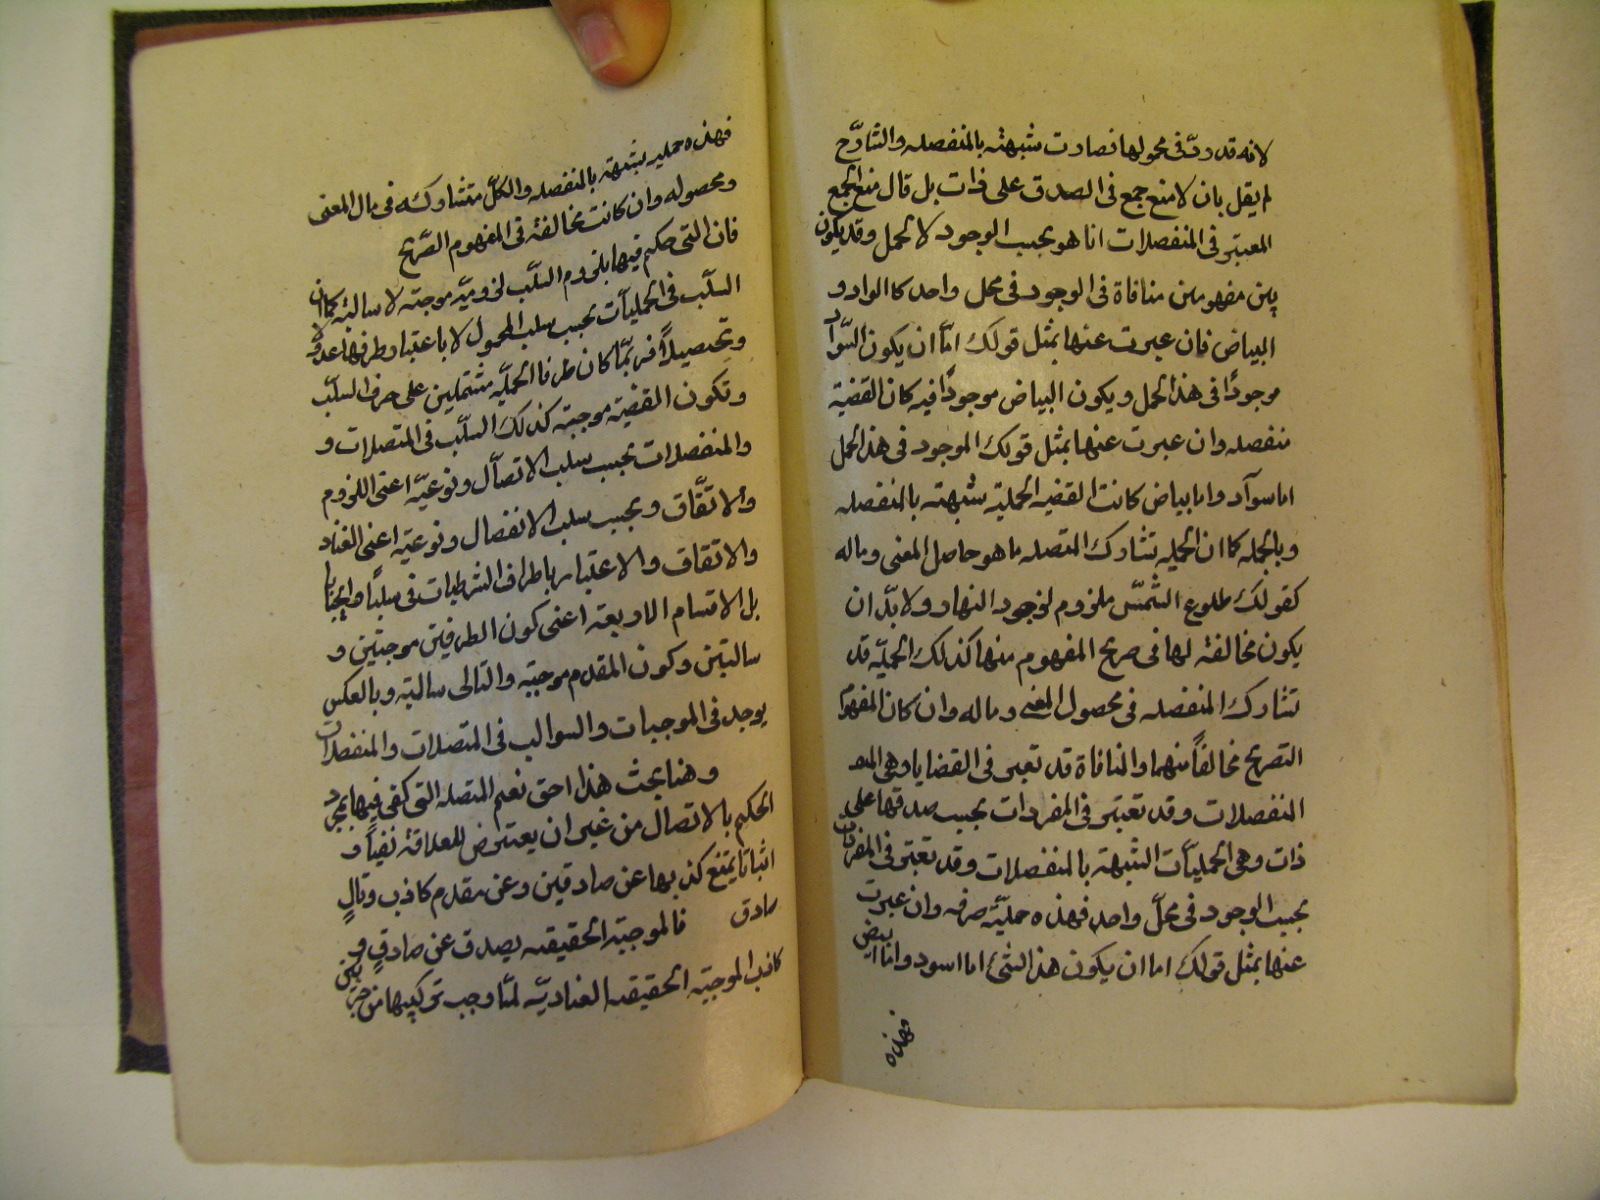 لانه قد ردّ فى محمولها فصارت شبيهته بالمنفصله والشارح
لم يقل بان لا منع جمع فى الصدق على ذات بل قال منع الجمع
المعتبر فى المنفصلات انما هو بحسب الوجود لا الحمل وقد يكون
بين مفهومين منافاة فى الوجود فى محل واحد كالسواد و
البياض فان عبرت عنها بمثل قولك امّا ان يكون السّواد
موجودًا فى هذا المحل ويكون البياض موجودًا فيه كان القضية
منفصله وان عبرت عنها بمثل قولك الموجود فى هذا المحل
اما سوآد واما بياض كانت القضيه الحملية شبيهته بالمنفصله
وبالجمله كما ان الحمليه تشارك المتصله ما هو حاصل المعنى وماله
كقولك طلوع الشمّس ملزوم لوجود النهار ولا بدّ ان
يكون مخالفة لها فى صريح المفهوم منها كذلك الحمليّه قد
تشارك المنفصله فى محصول المعنى وماله وان كان المفهوم
الصريح مخالفاً منهما والمنافاة قد تعتبر فى القضايا وهى
المنفصلات وقد تعتبر فى المفردات بحسب صدقها على
ذات وهى الحمليآت الشبيهته بالمنفصلات وقد تعتبر فى المفردات
بحسب الوجود فى محلّ واحد فهذه حمليّة صرفه وان عبرت
عنها بمثل قولك اما ان يكون هذا الشئ اما اسود واما ابيض
فهذه
فهذه حمليه شبيهته بالمنفصله والكلّ متشاركه فى مال المعنى
ومحصوله وان كانت مخالفة فى المفهوم الصّريح
فان التى حكم فيها بلزوم السلّب لزوميّه موجبته لا سالبته كما ان
السلّب فى الحمليآت بحسب سلب المحمول لا باعتبار طرفها عدولا
وتحصيلاً فربّما كان طرفا الحمليّه مشتملين على حرف السلّب
وتكون القضيّه موجبته كذلك السلّب فى المتصلات و
والمنفصلات بحسب سلب الاتصآل ونوعيّه اعنى اللزوم
والاتفّاق وبحسب سلب الانفصال ونوعيّه اعنى العناد
والاتفاق والاعتبار باطراف الشرطيات فى سلبًا وايجابا
بل الاقسام الاربعة اعنى كون الطرفين موجبتين و
سالبتين وكون المقدم موجبته والتالى سالبته وبالعكس
يوجد فى الموجبات والسوالب فى المتصلات والمنفصلات
وهنا بحث هذا احق نعم المتصله التى كفى فيها بمجرد
الحكم بالاتصال من غير ان يعترض للعلاقة نفيًا و
اثباتا يمتنع كذبها عن صادقين وعن مقدم كاذب وتالٍ
صادق فالموجبته الحقيقه يصدق عن صادقٍ و
كاذب الموجبّه الحقيقه العناديّه لمّا وجب تركيبها من جزئين